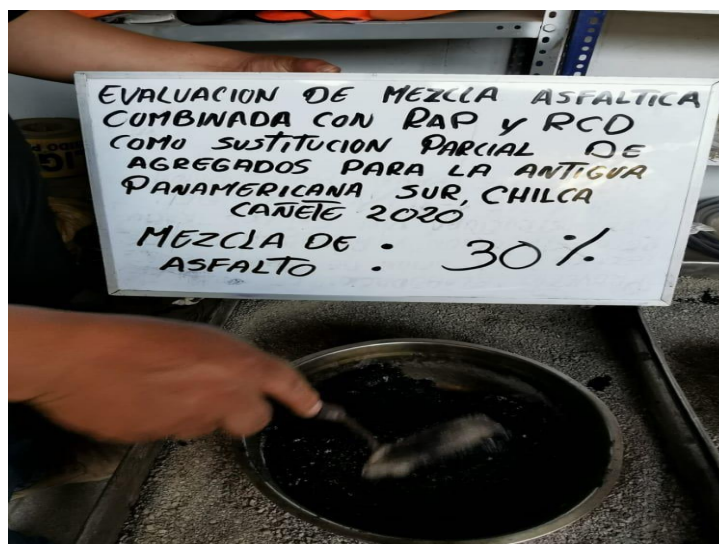 EVALUACION DE MEZCLA ASFALTICA
COMBINADA CON RAP Y RCD
COMO SUSTITUCION PARCIAL DE
AGREGADOS PARA LA ANTIGUA
PANAMERICANA SUR, CHILCA
CAÑETE 2020
MEZCLA DE : 30%
ASFALTO